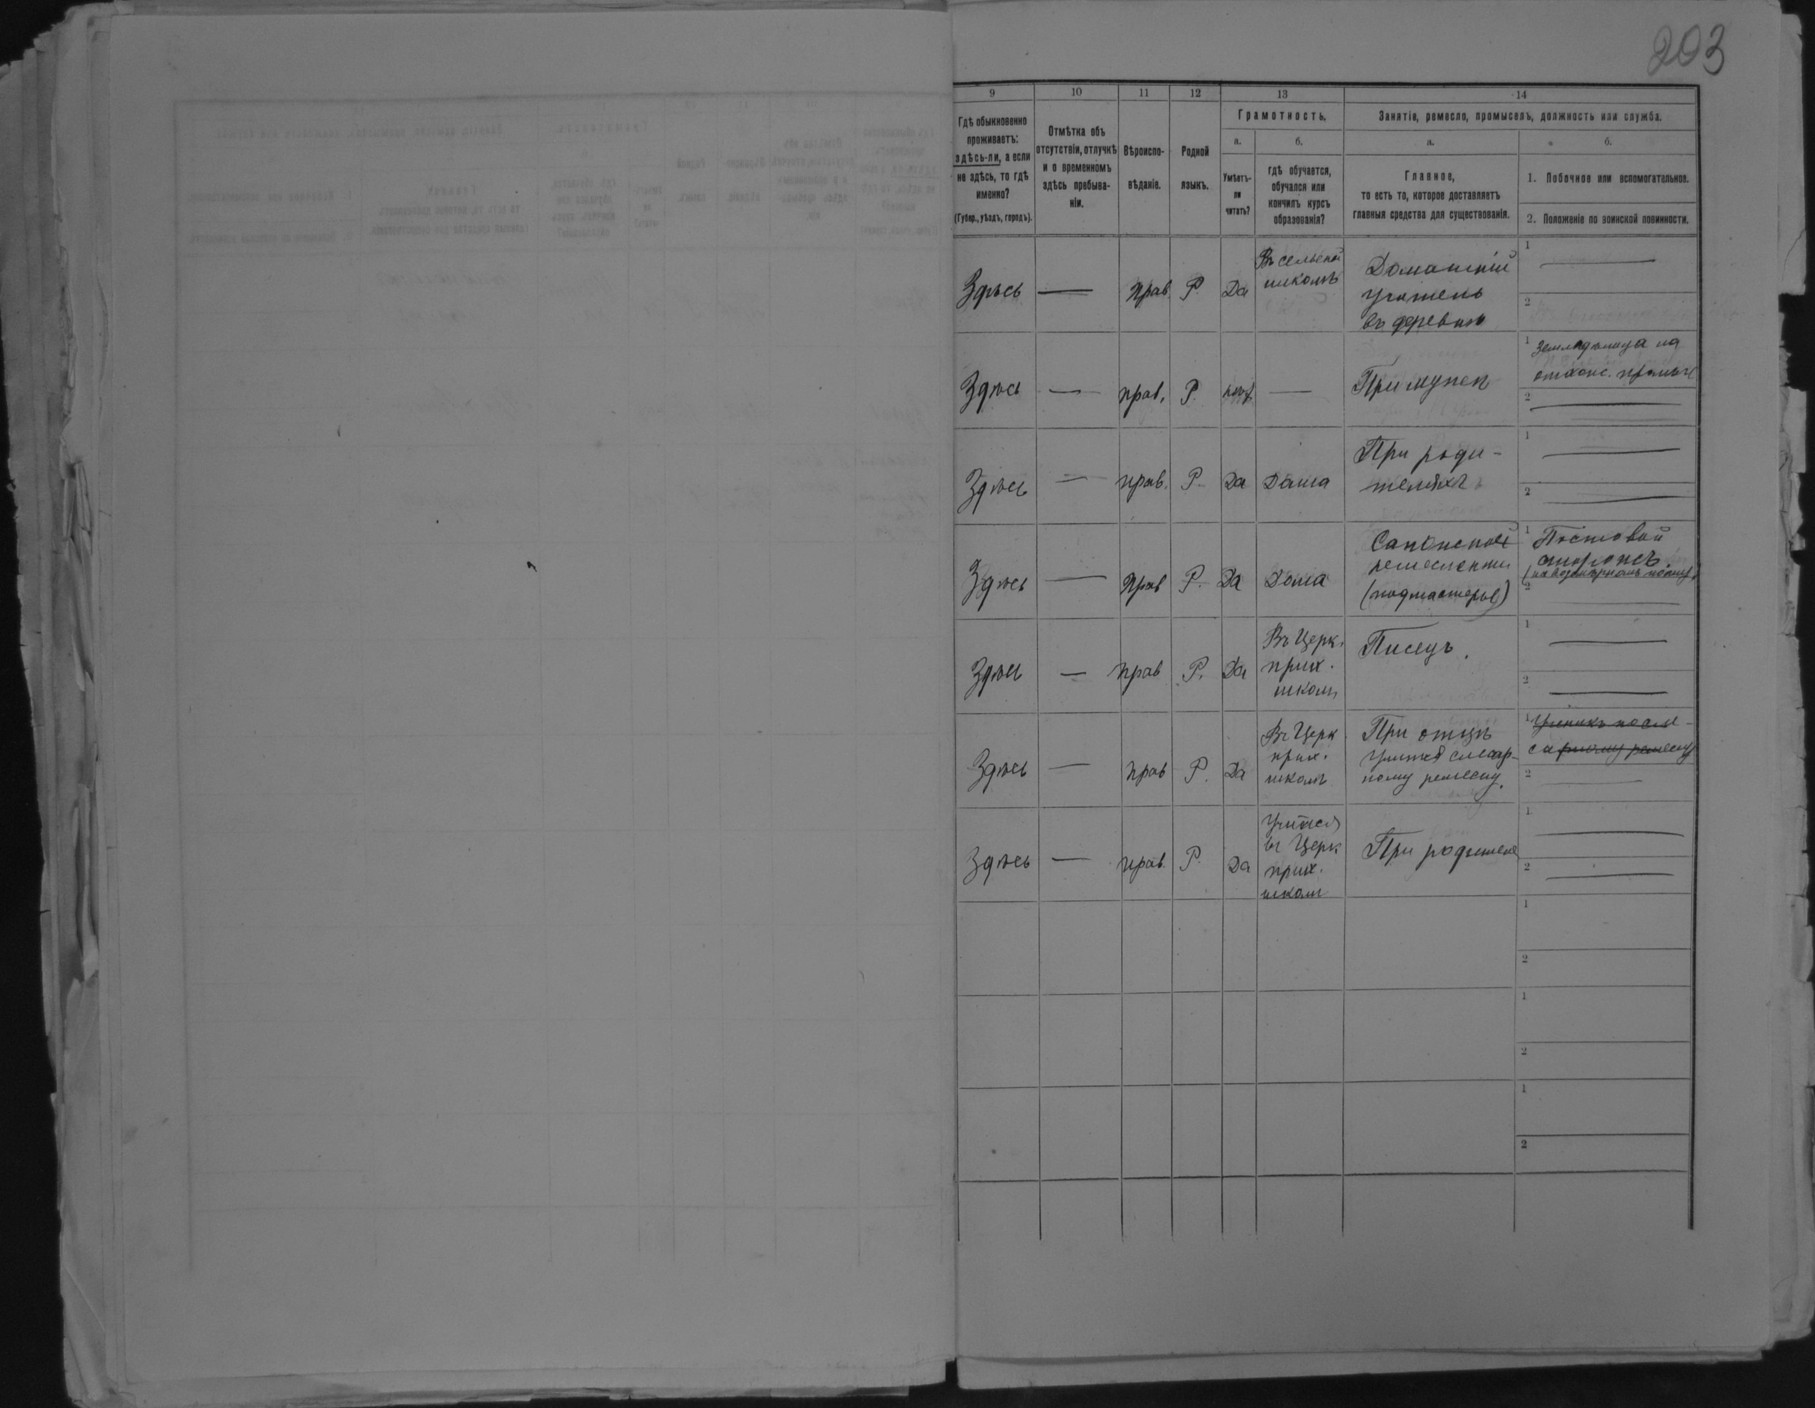 203
9 10 11 12 13 14
Гдѣ обыкновенно проживаетъ: здѣсь-ли, а если не здѣсь, то гдѣ именно? (Губер., уѣздъ, городъ).
Отмѣтка объ отсутствіи, отлучкѣ и о временномъ здѣсь пребываніи.
Вѣроиспо-
вѣданіе.
Родной
языкъ.
Грамотность.
а.
Умѣетъ-
ли
читать?
б.
гдѣ обучается,
обучался или
кончилъ курсъ
образованія?
Занятіе, ремесло, промыселъ, должность или служба.
а.
Главное,
то есть то, которое доставляетъ
главныя средства для существованія.
б.
1. Побочное или вспомогательное.
2. Положеніе по воинской повинности.
Здѣсь — прав Р. Да
Въ сельской
школѣ
Домашній
учитель
въ деревнѣ
1 —
2
Здѣсь — прав. Р. —
При мужѣ
1
2 —
Здѣсь — прав. Р. Да Дома
При роди-
теляхъ
1 —
2 —
Здѣсь — прав Р. Да Дома
(подмастерье)
1
2 —
Здѣсь — прав Р. Да
Въ Церк.
прих.
школѣ
Писецъ.
1 —
2 —
Здѣсь — прав Р. Да
Въ Церк
прих.
школѣ
При отцѣ
учится слесар-
ному ремеслу.
1
2 —
Здѣсь — прав Р. Да
Учится
въ Церк
прих.
школѣ
При родителѣ
1 —
2 —
1
2
1
2
1
2